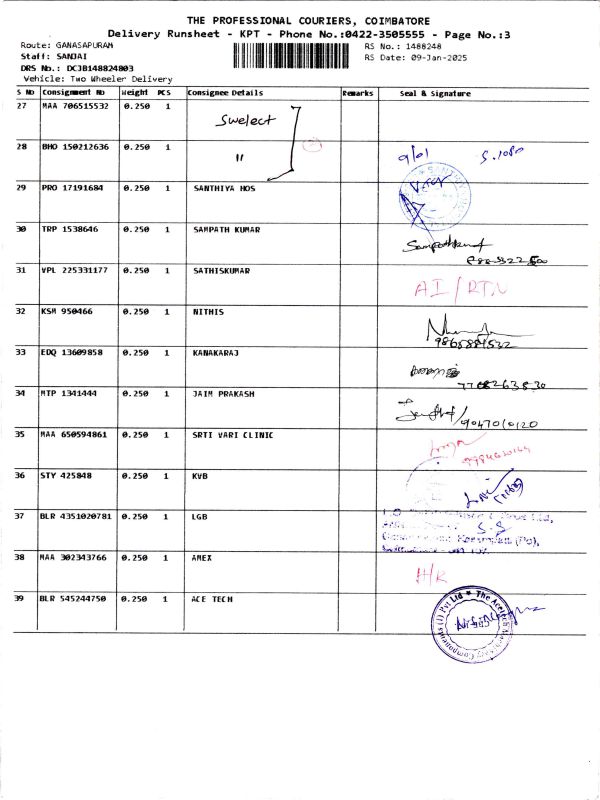 THE PROFESSIONAL COURIERS, COIMBATORE
Delivery Runsheet - KPT - Phone No.:0422-3505555 - Page No.:3
Route: GANASAPURAM RS No.: 1488248
Staff: SANJAI RS Date: 09-Jan-2025
DRS No.: DCJB148824803
Vehicle: Two Wheeler Delivery
S No Consignment No Weight PCS Consignee Details Remarks Seal & Signature
27 MAA 706515532 0.250 1 Swelect
28 BHO 150212636 0.250 1 " 9/01
29 PRO 17191684 0.250 1 SANTHIYA HOS
30 TRP 1538646 0.250 1 SAMPATH KUMAR
31 VPL 225331177 0.250 1 SATHISKUMAR AI/RT.
32 KSM 950466 0.250 1 NITHIS
9865884532
33 EDQ 13609858 0.250 1 KANAKARAJ
7708263830
34 MTP 1341444 0.250 1 JAIM PRAKASH
9047010120
35 MAA 650594861 0.250 1 SRTI VARI CLINIC
36 STY 425848 0.250 1 KVB
37 BLR 4351020781 0.250 1 LGB
38 MAA 302343766 0.250 1 AMEX H/R
39 BLR 545244750 0.250 1 ACE TECH